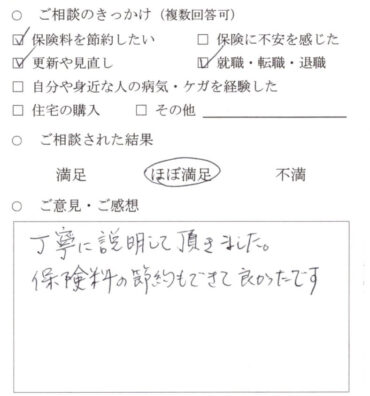 ○ ご相談のきっかけ（複数回答可）
☑ 保険料を節約したい □ 保険に不安を感じた
☑ 更新や見直し ☑ 就職・転職・退職
□ 自分や身近な人の病気・ケガを経験した
□ 住宅の購入 □ その他
○ ご相談された結果
満足 ほぼ満足 不満
○ ご意見・ご感想
丁寧に説明して頂きました。
保険料の節約もできて良かったです